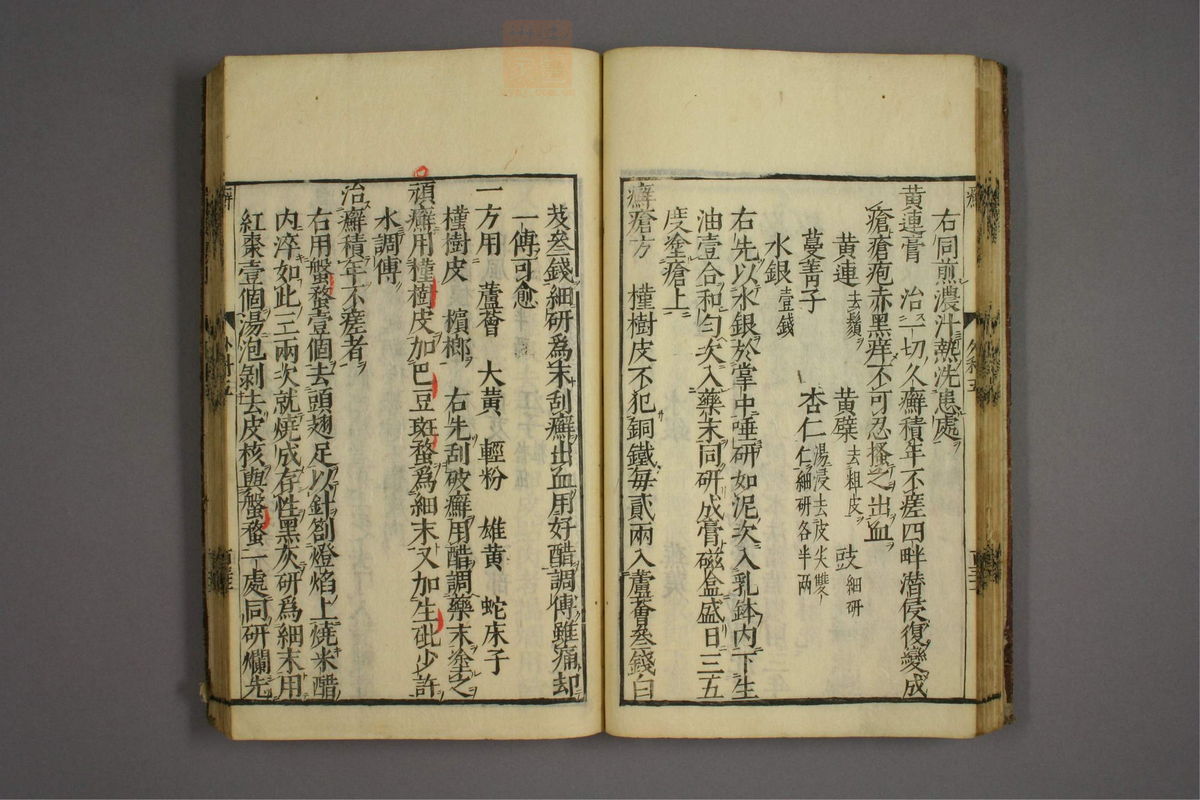 右同煎濃汁熱洗患處
黄連膏　治一切久癬積年不瘥四畔潜侵復變成
瘡瘡疱赤黑痒不可忍搔之出血
黄連去鬚　黄檗去粗皮　豉細研
蔓菁子　杏仁湯浸去皮尖雙仁細研各半兩
水銀壹錢
右先以水銀於掌中唾研如泥次入乳鉢内下生
油壹合和匀次入藥末同研成膏磁盒盛日三五
度塗瘡上
癬瘡方　槿樹皮不犯銅鐵毎貳兩入蘆薈叄錢白
芨叄錢細研爲末刮癬出血用好醋調傅雖痛却
一傅可愈
一方用　蘆薈　大黄　輕粉　雄黄　蛇床子
槿樹皮　檳榔　右先刮破癬用醋調藥末塗之
頑癬用槿樹皮加巴豆斑蝥爲細末又加生砒少許
水調傅
治癬積年不瘥者
右用盤蝥壹個去頭翅足以針劄燈焰上燒米醋
内淬如此三兩次就燒成存性黑灰研爲細末用
紅棗壹個湯泡剝去皮核與盤蝥一處同研爛先